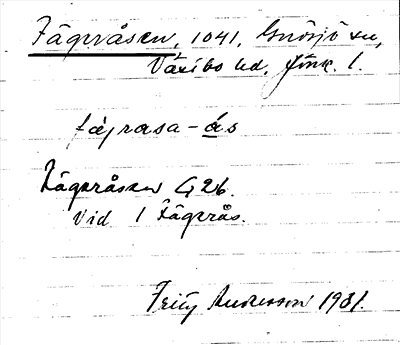 Fägeråsen, 1041, Gnosjö sn,
Västbo hd, Jönk. l.
fɑ̀jrasa-ås
Fägeråsen G26.
Vid 1 Fägerås.
Fritz Andersson 1931.